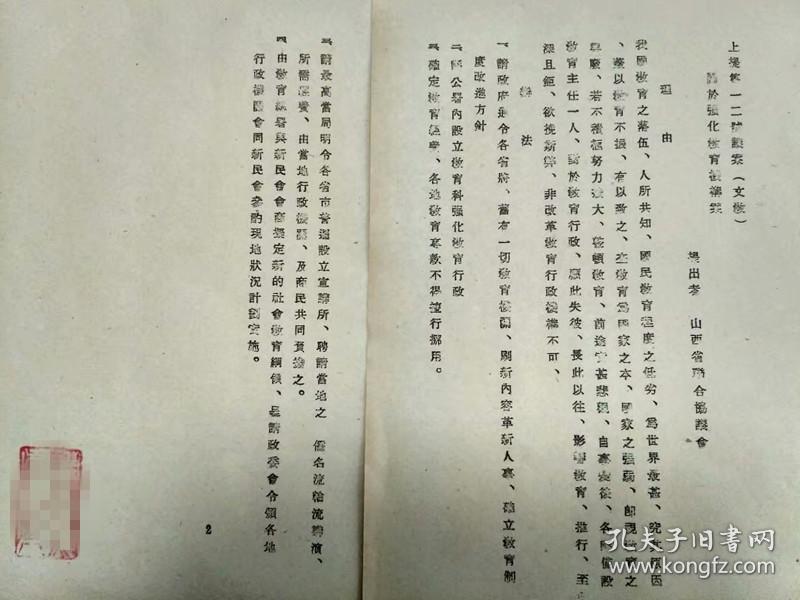 上提第一二號議案（文教）
關於强化教育機構案
提出者　山西省聯合協議會
理由
我國教育之落伍、人所共知、國民教育程度之低劣、爲世界最甚、究其原因
、蓋以教育不振、有以致之、查教育爲國家之本、國家之强弱、即視教育之
興廢、若不積極努力擴大、整頓教育、前途實甚悲觀、自事變後、各縣僅設
教育主任一人、對於教育行政、顧此失彼、長此以往、影響教育、推行、至
深且鉅、欲挽斯弊、非改革教育行政機構不可、
辦法
一、請政府通令各省將、舊有一切教育機關、刷新內容革新人事、確立教育制
度改進方針
二、縣公署內設立教育科强化教育行政
三、確定教育經費、各地教育專款不得擅行挪用。
三、請最高當局明令各省市普遍設立宣講所、聘請當地之　儒名流輪流舉演、
所需經費、由當地行政機關、及商民共同負擔之。
四、由教育總署與新民會會商擬定新的社會教育綱領、呈請政委會令頒各地
行政機關會同新民會參酌現地狀況計劃實施。
2
孔夫子旧书网
www.kongfz.com